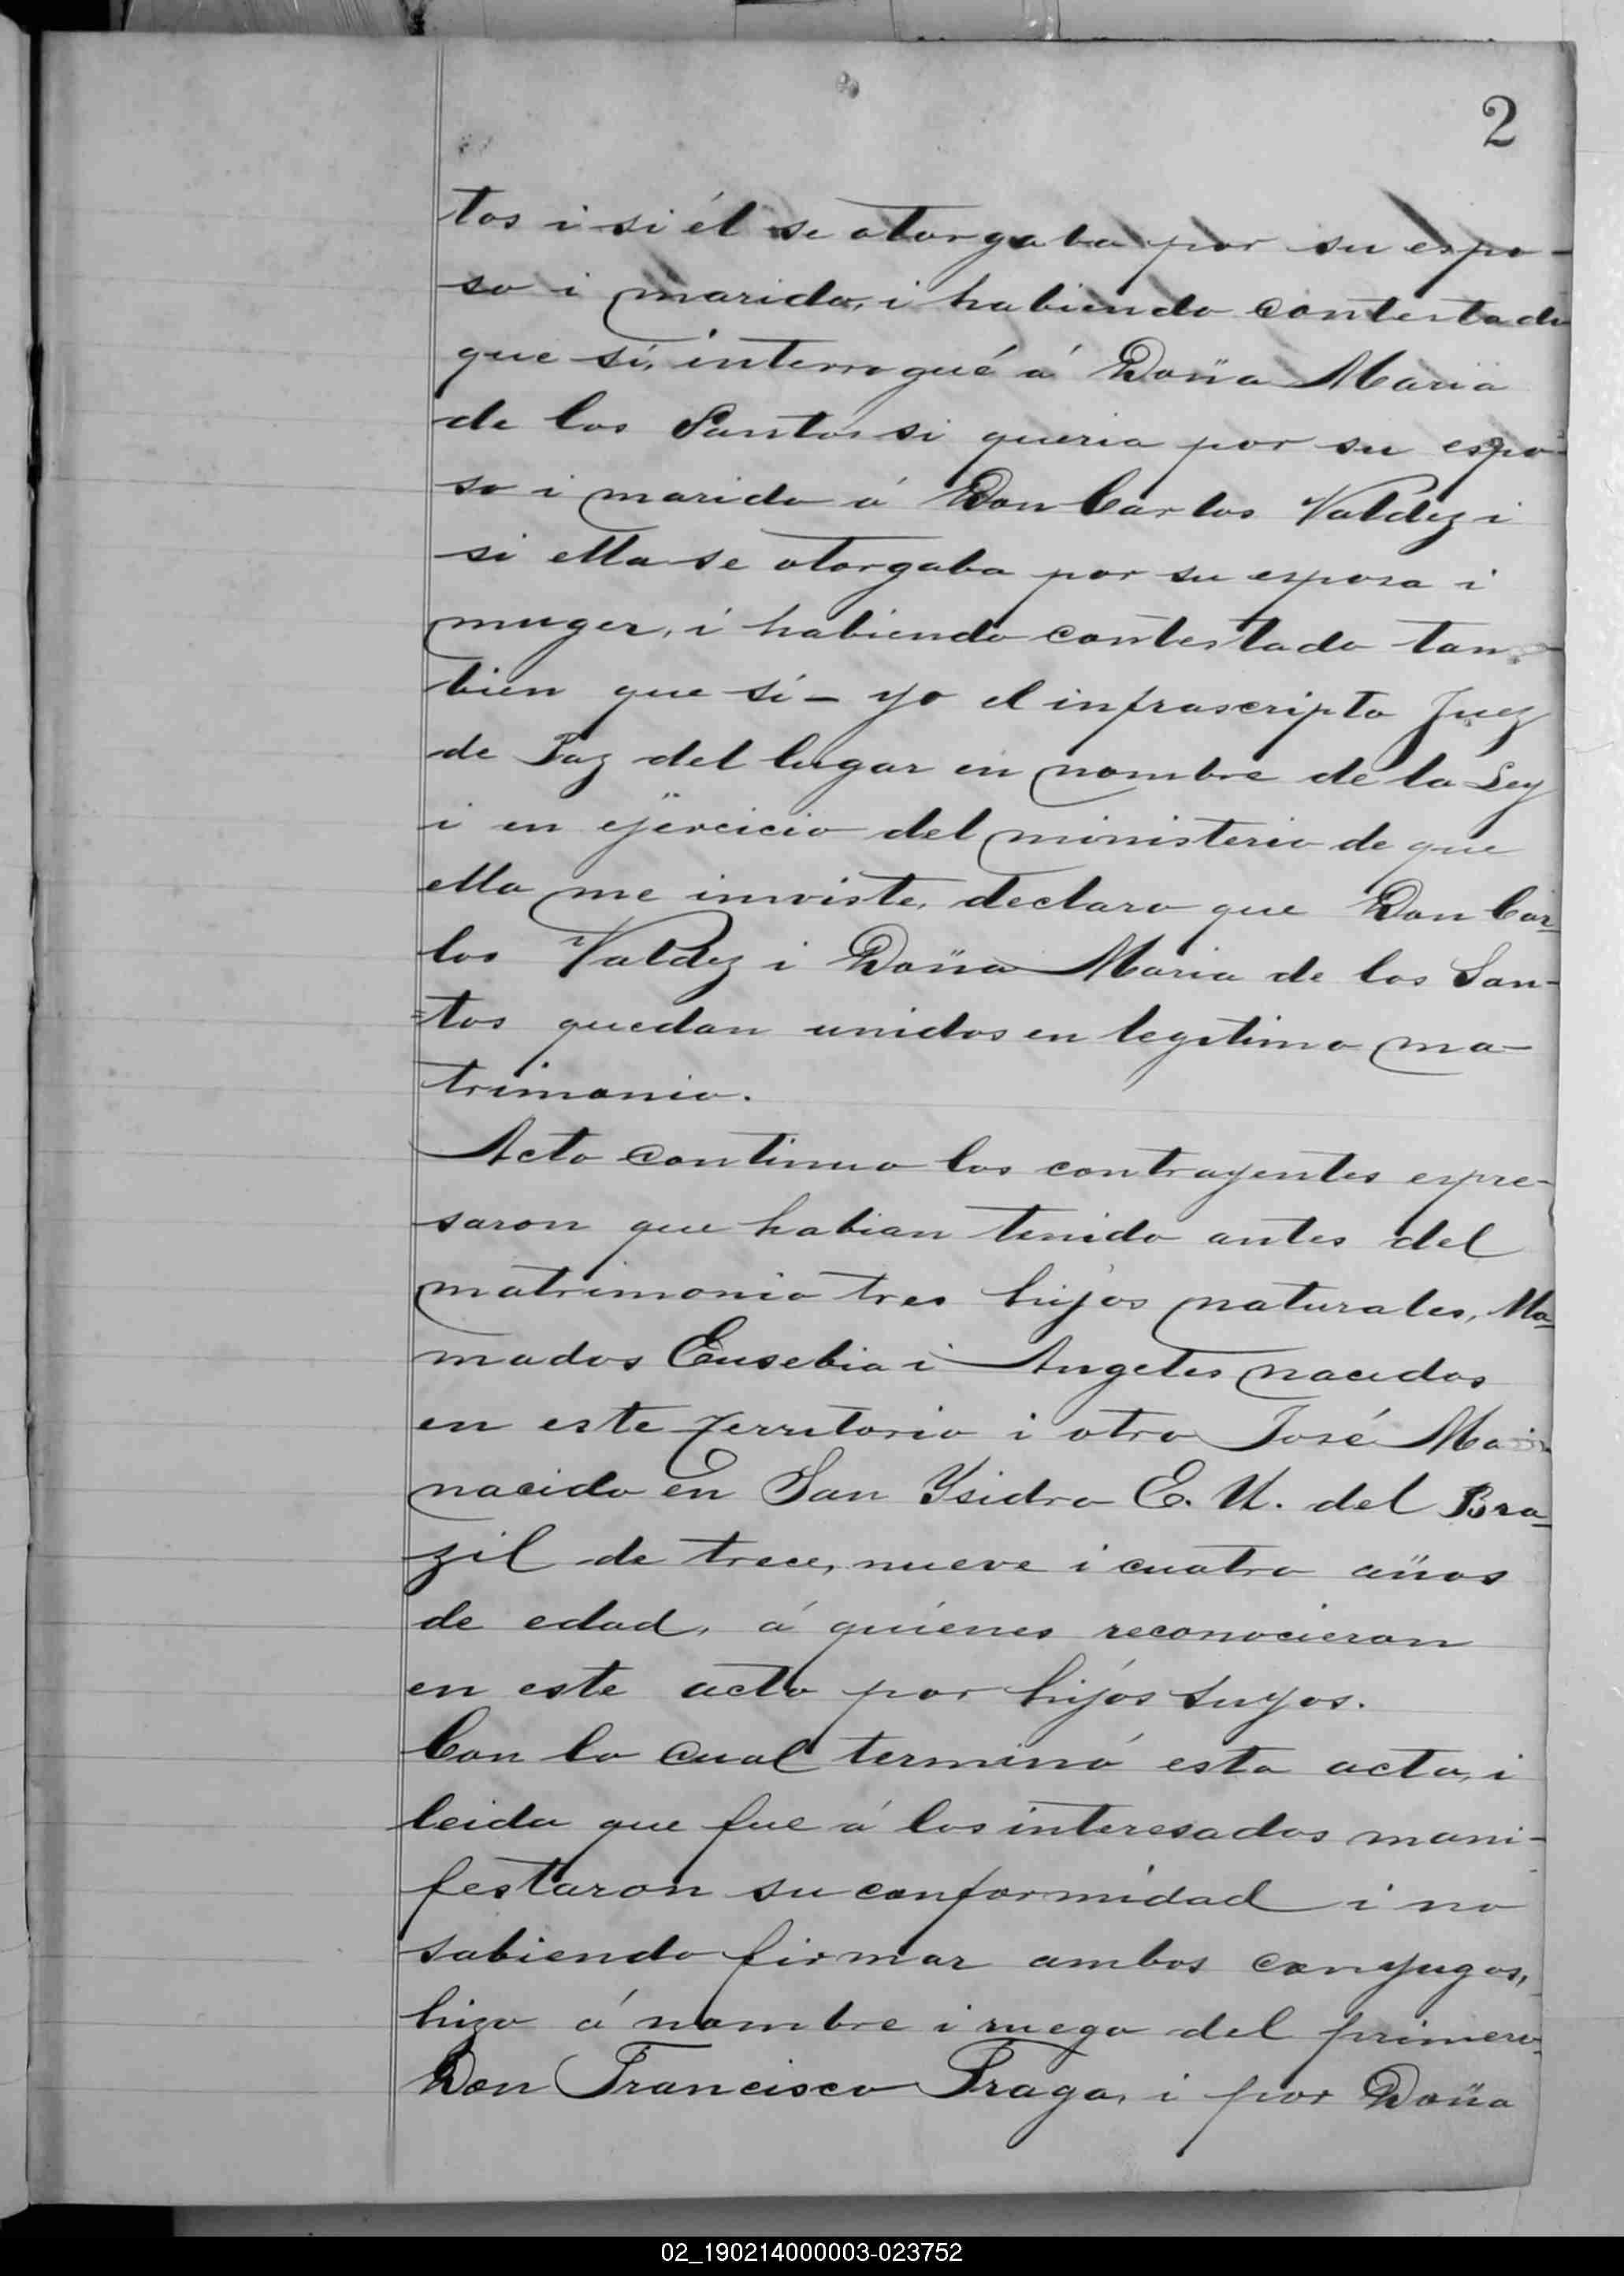 2
tos i si él se otorgaba por su espo-
so i marido, i habiendo contestado
que sí, interrogué á Doña Maria
de los Santos si queria por su espo-
so i marido á Don Carlos Valdez i
si ella se otorgaba por su esposa i
muger, i habiendo contestado tam-
bien que sí - yo el infrascripto Juez
de Paz del lugar en nombre de la Ley
i en ejercicio del ministerio de que
ella me inviste, declaro que Don Car-
los Valdez i Doña Maria de los San-
=tos quedan unidos en legitimo ma-
trimonio.
Acto continuo los contrayentes espre-
saron que habian tenido antes del
matrimonio tres hijos naturales, lla-
mados Eusebia i Angeles nacidos
en este Territorio i otro José
nacido en San Ysidro E. U. del Bra-
zil de trece, nueve i cuatro años
de edad, á quienes reconocieron
en este acto por hijos suyos.
Con lo cual terminó esta acta, i
leida que fue á los interesados mani-
festaron su conformidad i no
sabiendo firmar ambos conyugos,
hizo á nombre i ruego del primero
Don Francisco Fraga, i por Doña
02_190214000003-023752